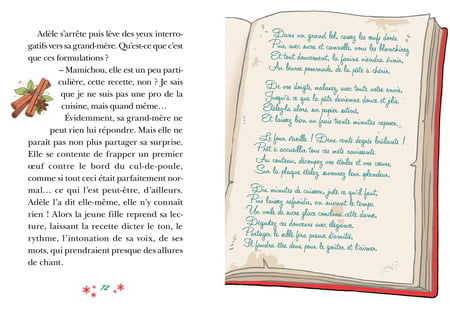 Adèle s'arrête puis lève des yeux interro-
gatifs vers sa grand-mère. Qu'est-ce que c'est
que ces formulations ?
– Mamichou, elle est un peu parti-
culière, cette recette, non ? Je sais
que je ne suis pas une pro de la
cuisine, mais quand même…
Évidemment, sa grand-mère ne
peut rien lui répondre. Mais elle ne
paraît pas non plus partager sa surprise.
Elle se contente de frapper un premier
œuf contre le bord du cul-de-poule,
comme si tout ceci était parfaitement nor-
mal… ce qui l'est peut-être, d'ailleurs.
Adèle l'a dit elle-même, elle n'y connaît
rien ! Alors la jeune fille reprend sa lec-
ture, laissant la recette dicter le ton, le
rythme, l'intonation de sa voix, de ses
mots, qui prendraient presque des allures
de chant.
72
Dans un grand bol, cassez les œufs dorés.
Puis, avec sucre et cannelle, vous les blanchirez
Et tout doucement, la farine viendra s'unir,
Au beurre pommade, de la pâte à chérir.
De vos doigts, malaxez avec toute votre envie,
Jusqu'à ce que la pâte devienne douce et jolie.
Étalez-la alors, au papier,
Et laissez bien au frais trente minutes reposer.
Le four s'éveille ! Deux cents degrés brûlants !
Prêt à accueillir tous ces moments
Au couteau, découpez vos étoiles et vos cœurs,
Sur la plaque étalez, savourez leur splendeur.
Dix minutes de cuisson, juste ce qu'il faut,
Puis laissez refroidir, en suivant le tempo.
Un voile de sucre glace conclura cette danse,
Dégustez ces douceurs avec élégance.
Partager le sablé fera preuve d'amitié,
Il faudra être deux pour le goûter et l'aimer.